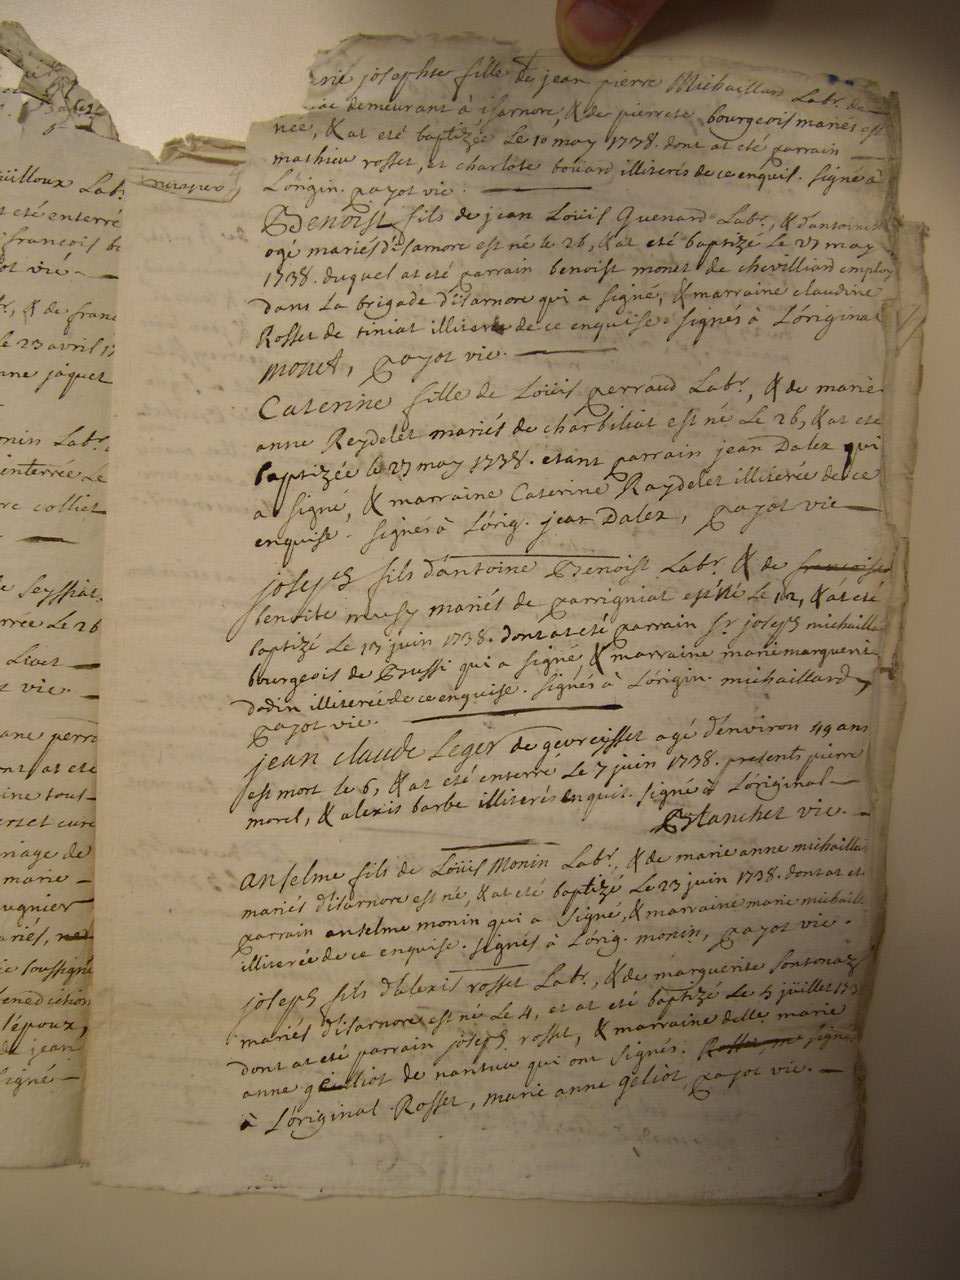 rie josephte fille de jean pierre Michaillard Labr. de
demeurant à isarnore, & de pierrete bourgeois mariés est
née, & at eté baptizée Le 10 may 1738. dont at eté parrain
mathieu rosset, et charlote boüard illiterés de ce enquis. signé à
L'origin. payot vic.
Benoist fils de jean Loüis Quenard Labr., & d'antoine
ogé mariés d'isarnore est né le 26, & at eté baptizé Le 27 may
1738. duquel at eté parrain benoist monet de chevilliard employ
dans La brigade d'isarnore qui a signé, & marraine claudine
Rosset de tiniat illiterée de ce enquise. signés à L'original
monet, payot vic.
Caterine fille de Loüis perraud Labr., & de marie
anne Reydelet mariés de charbiliat est né Le 26, & at eté
baptizée le 27 may 1738. etant parrain jean Dalex qui
a signé, & marraine Caterine Raydelet illiterée de ce
enquise. signés à L'orig. jean Dalex, payot vic
joseph fils d'antoine Benoist Labr. & de francoise
benoite mariés de parrigniat est né Le 12, & at eté
baptizé Le 13 juin 1738. dont at eté parrain sr. joseph michailla
bourgeois de Bussi qui a signé, & marraine marie marguerie
dodin illiterée de ce enquise. signés à L'origin. michaillard,
payot vic.
jean claude Leger de gevreisset agé d'environ 49 ans
est mort le 6, & at eté enterré Le 7 juin 1738. presents pierre
morel, & alexis barbe illiterés enquis. signé à L'original
Blanchet vic.
anselme fils de Loüis Monin Labr., & de marie anne michailla
mariés d'isarnore est né, & at eté baptizé Le 23 juin 1738. dont at et
parrain anselme monin qui a signé, & marraine marie michaill
illiterée de ce enquise. signés à L'orig. monin, payot vic.
joseph fils d'alexis rosset Labr., & de marguerite sontonaz
mariés d'isarnore est né Le 4, et at eté baptizé Le 5 jüillet 173
dont at eté parrain joseph rosset, & marraine delle. marie
anne geliot de nantua qui ont signés. Rosset, ma signés
à L'original Rosset, marie anne geliot, payot vic.
üilloux Lab.
t eté enterré
françois b
ot vié
r, & de franc
le 23 avril 17
nne jaquet
onin Labr.
enterrée Le
re colliet
e seyssiat
rrée Le 26
Livet
t vic.
ane perro
ont at ete
ine tout
riage de
marie
ugnier
ariés,
ie soussigné
enediction
l'époux,
de jean
signé